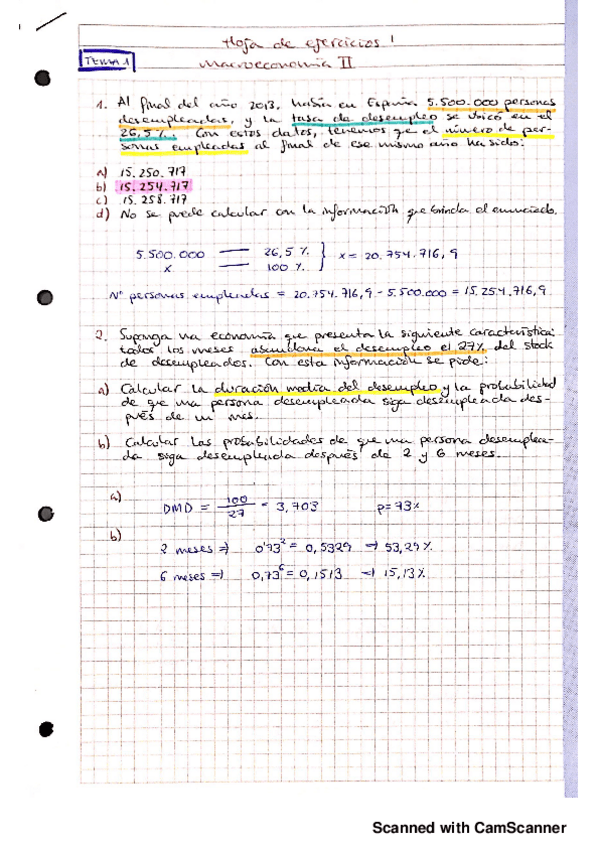 Hoja de ejercicios 1
TEMA 1
Macroeconomía II
1. Al final del año 2013, había en España 5.500.000 personas
desempleadas, y la tasa de desempleo se ubicó en el
26,5%. Con estos datos, tenemos que el número de per-
sonas empleadas al final de ese mismo año ha sido:
a) 15.250.717
b) 15.254.717
c) 15.258.717
d) No se puede calcular con la información que brinda el enunciado.
5.500.000 — 26,5% } x = 20.754.716,9
x — 100%
Nº personas empleadas = 20.754.716,9 - 5.500.000 = 15.254.716,9
2. Suponga una economía que presenta la siguiente característica:
todos los meses abandona el desempleo el 27% del stock
de desempleados. Con esta información se pide:
a) Calcular la duración media del desempleo y la probabilidad
de que una persona desempleada siga desempleada des-
pués de un mes.
b) Calcular las probabilidades de que una persona desemplea-
da siga desempleada después de 2 y 6 meses.
a) DMD = 100/27 = 3,703 p=73%
b)
2 meses ⇒ 0'73² = 0,5329 ⇒ 53,29%
6 meses ⇒ 0,73⁶ = 0,1513 ⇒ 15,13%
Scanned with CamScanner